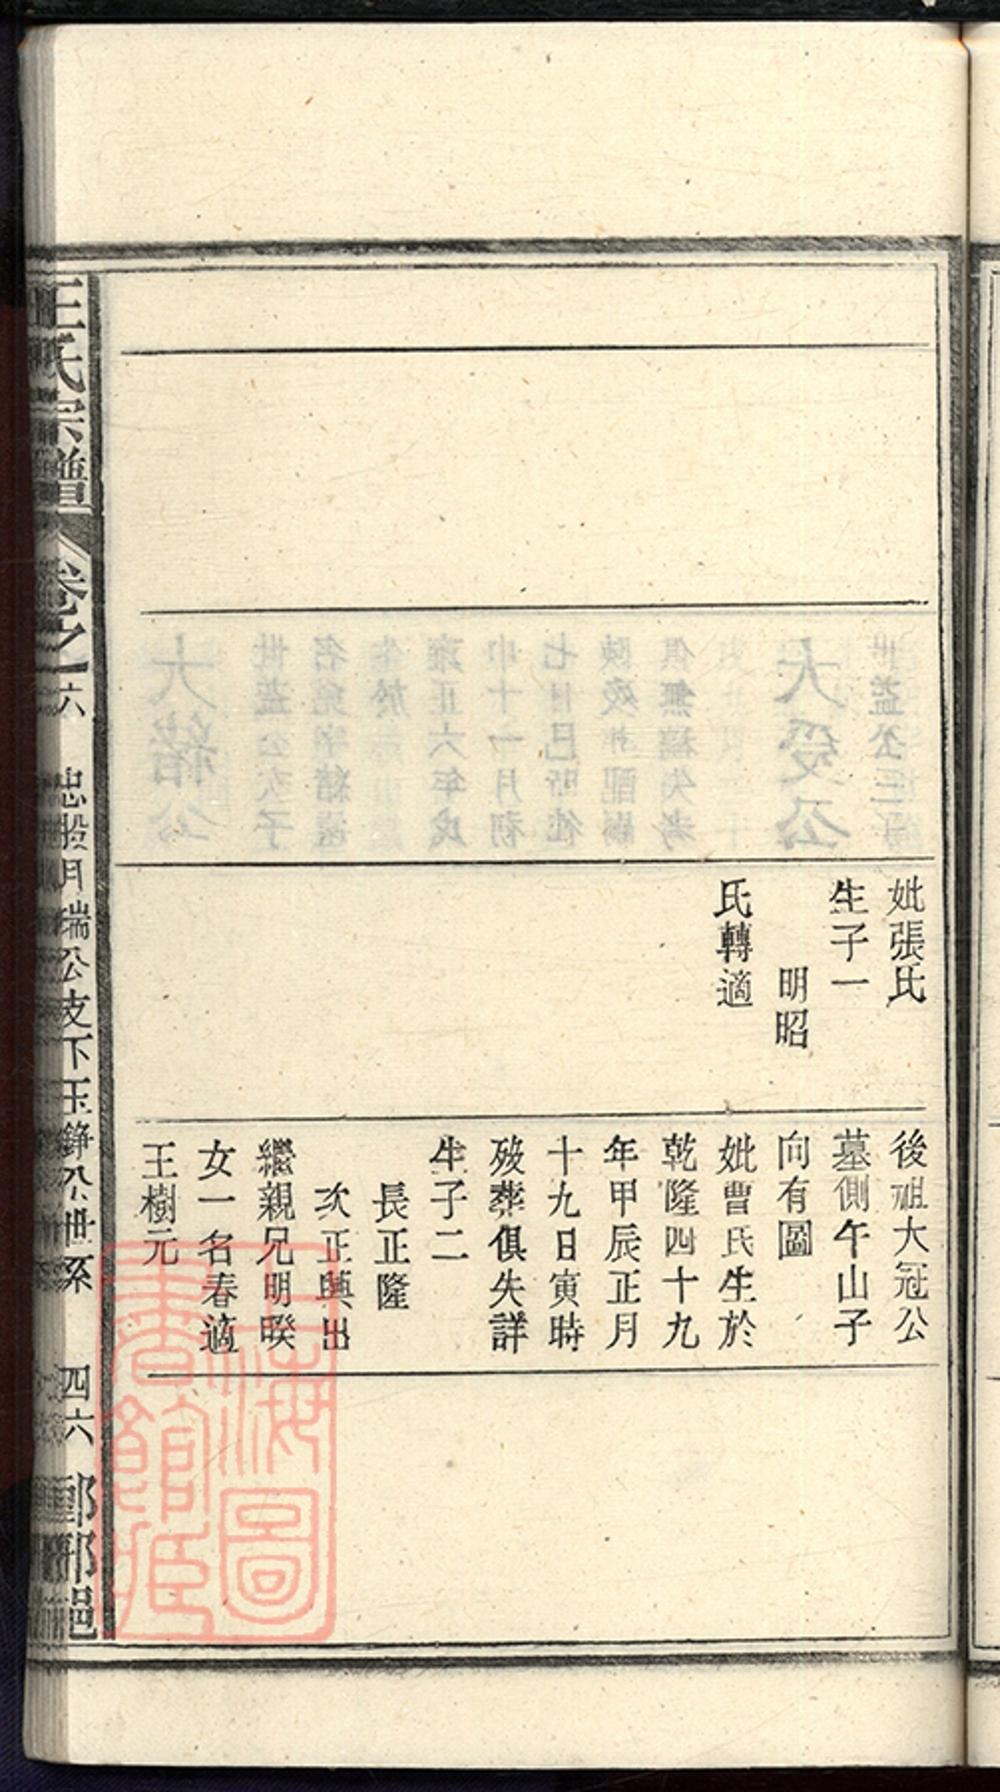 妣張氏
生子一
明昭
氏轉適
後祖大冠公
墓側午山子
向有圖
妣曹氏生於
乾隆四十九
年甲辰正月
十九日寅時
歿葬俱失詳
生子二
長正隆
次正與出
繼親兄明暌
女一名春適
王樹元
王氏宗譜
卷之六
忠股月瑞公支下玉錚公世系
四六
上海圖書館藏